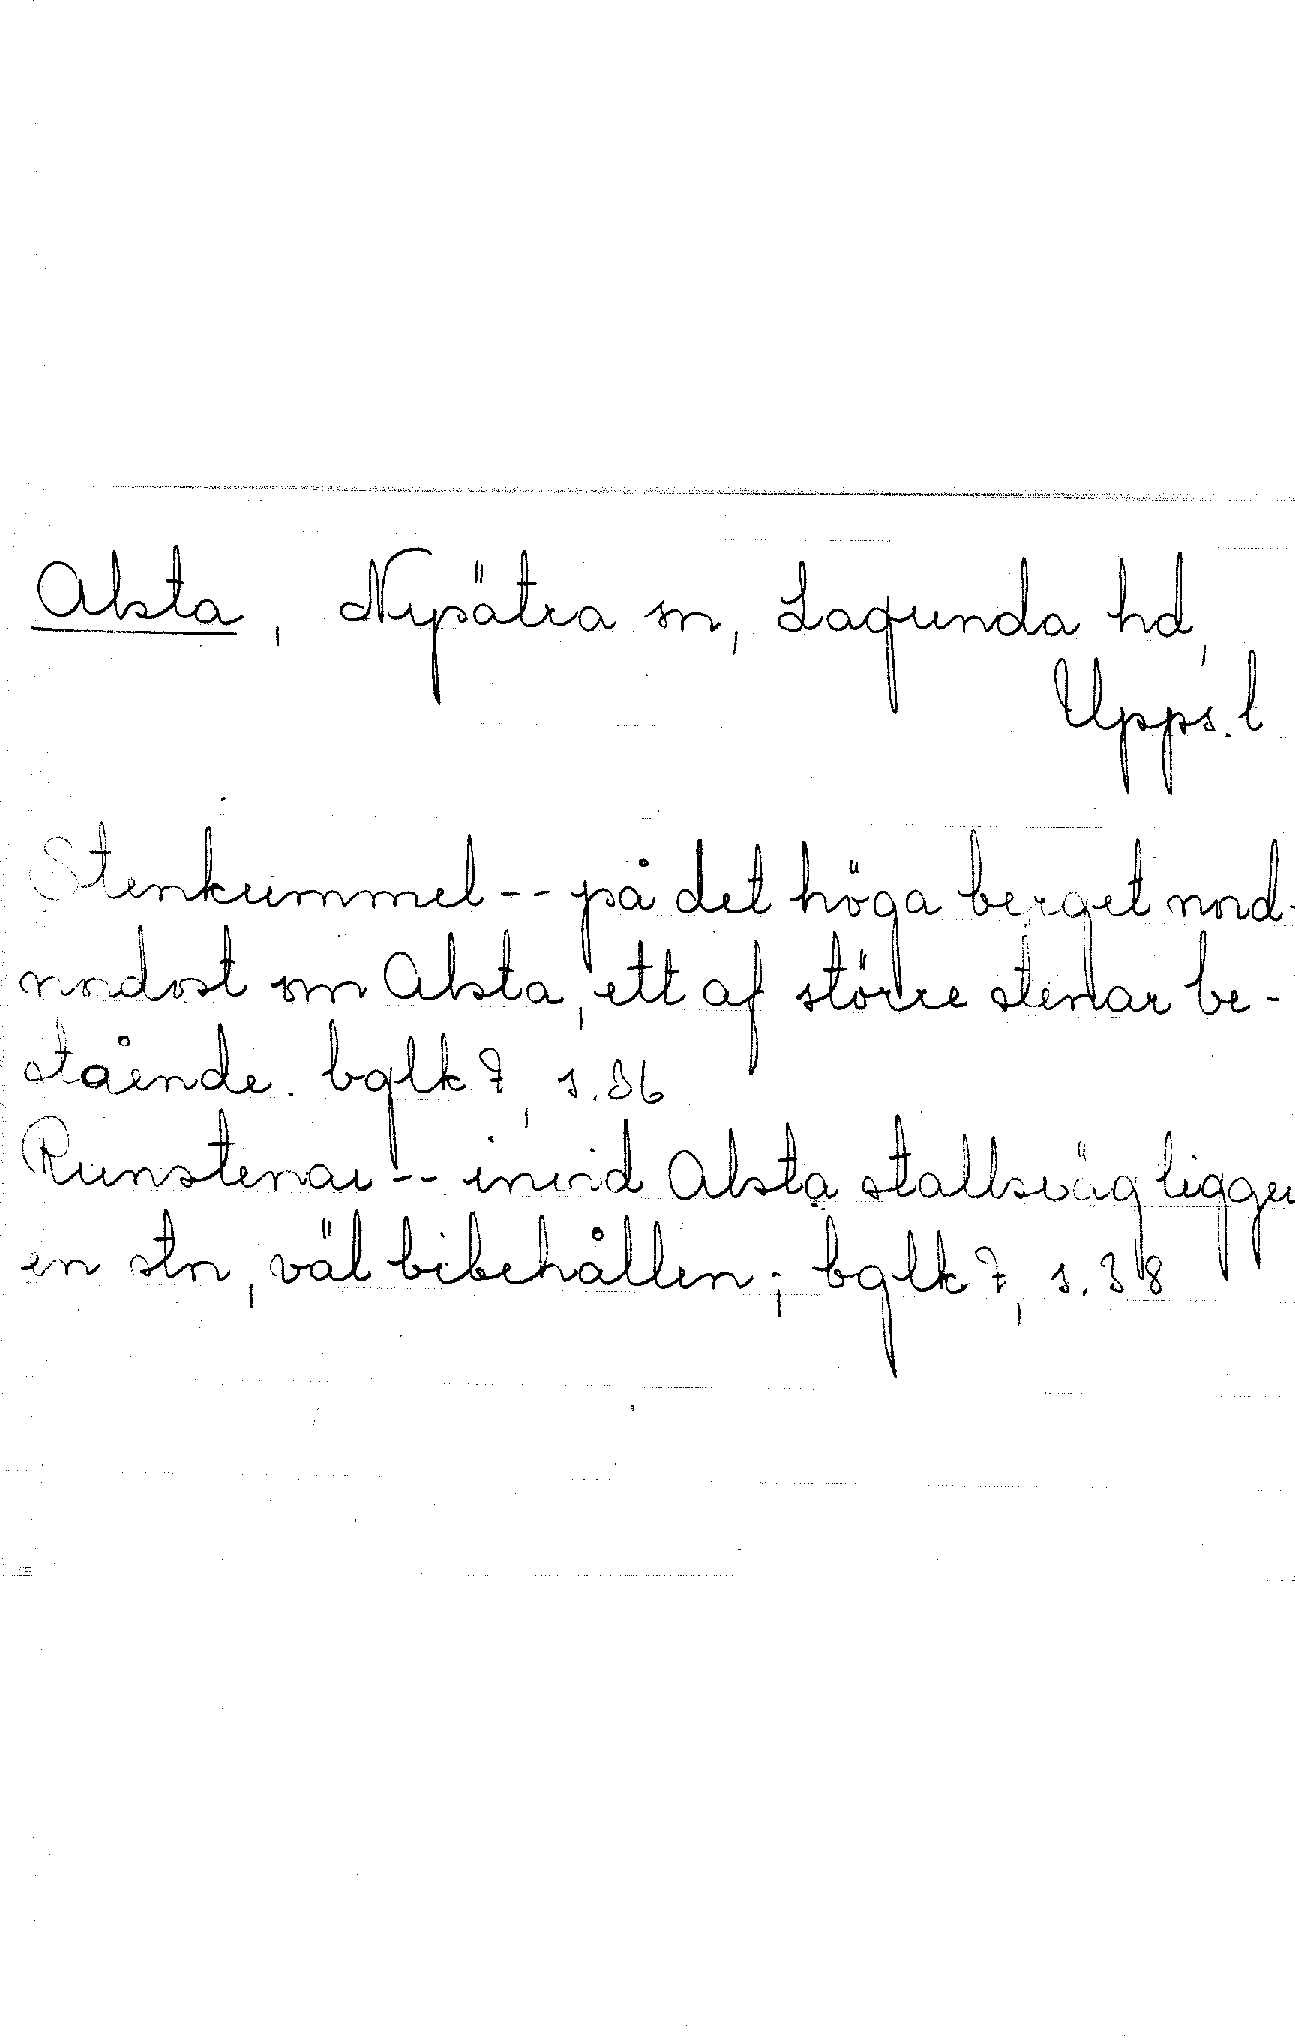 Alsta, Nysätra sn, Lagunda hd,
Upps. l
Stenkummel -- på det höga berget nord-
nordost om Alsta, ett af större stenar be-
stående. bglk 7, s. 36
Runstenar -- invid Alsta stallsväg ligger
en stn, väl bibehållen; bglk 7, s. 38